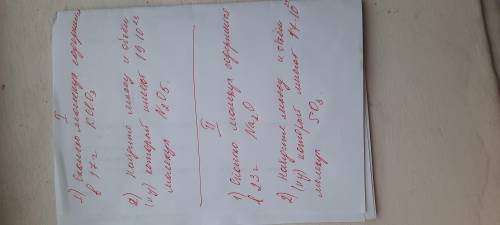 I
1) Сколько молекул содержится
в 17 г. KClO3
2) Найдите массу и объём
(н.у) который имеют 19·10²³
молекул N2O5.
II
1) Сколько молекул содержится
в 23 г Na2O
2) Найдите массу и объём
(н.у) который имеют
молекул SO3